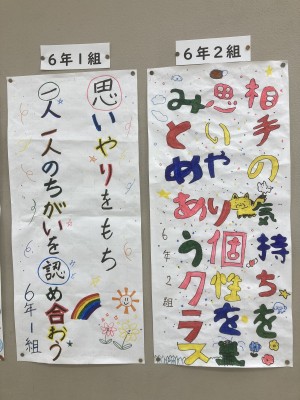 6年1組
思いやりをもち
一人一人のちがいを認め合おう
6年1組
6年2組
相手の気持ちを
思いやり個性を
みとめあうクラス
6年2組